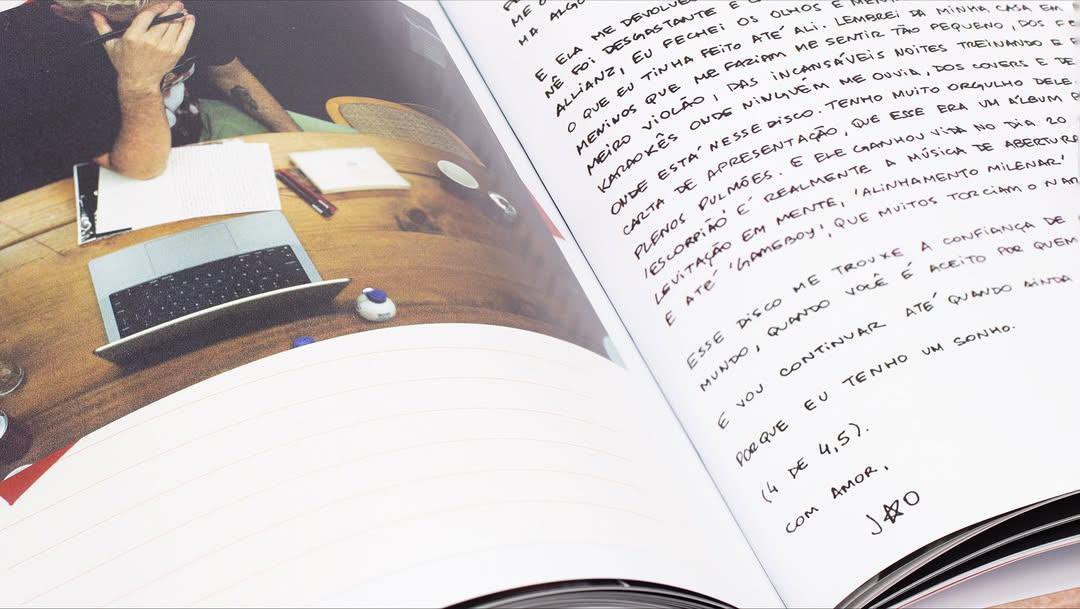 ME
MA ALGO
E ELA ME DEVOLVEU
NÊ FOI DESGASTANTE E
ALLIANZ, EU FECHEI OS OLHOS E
O QUE EU TINHA FEITO ATÉ ALI. LEMBREI DA MINHA CASA EM
MENINOS QUE ME FAZIAM ME SENTIR TÃO PEQUENO, DOS
MEIRO VIOLÃO, DAS INCANSÁVEIS NOITES TREINANDO E
KARAOKÊS ONDE NINGUÉM ME OUVIA, DOS COVERS E DE
ONDE ESTÁ NESSE DISCO. TENHO MUITO ORGULHO DELE.
CARTA DE APRESENTAÇÃO, QUE ESSE ERA UM ÁLBUM
PLENOS PULMÕES. E ELE GANHOU VIDA NO DIA 20
'ESCORPIÃO' É REALMENTE A MÚSICA DE ABERTURA
LEVITAÇÃO EM MENTE, 'ALINHAMENTO MILENAR'
E ATÉ 'GAMEBOY', QUE MUITOS TORCIAM O NAR
ESSE DISCO ME TROUXE A CONFIANÇA DE
MUNDO, QUANDO VOCÊ É ACEITO POR QUEM
E VOU CONTINUAR ATÉ QUANDO AINDA
PORQUE EU TENHO UM SONHO.
(4 DE 4,5).
COM AMOR,
J☆O